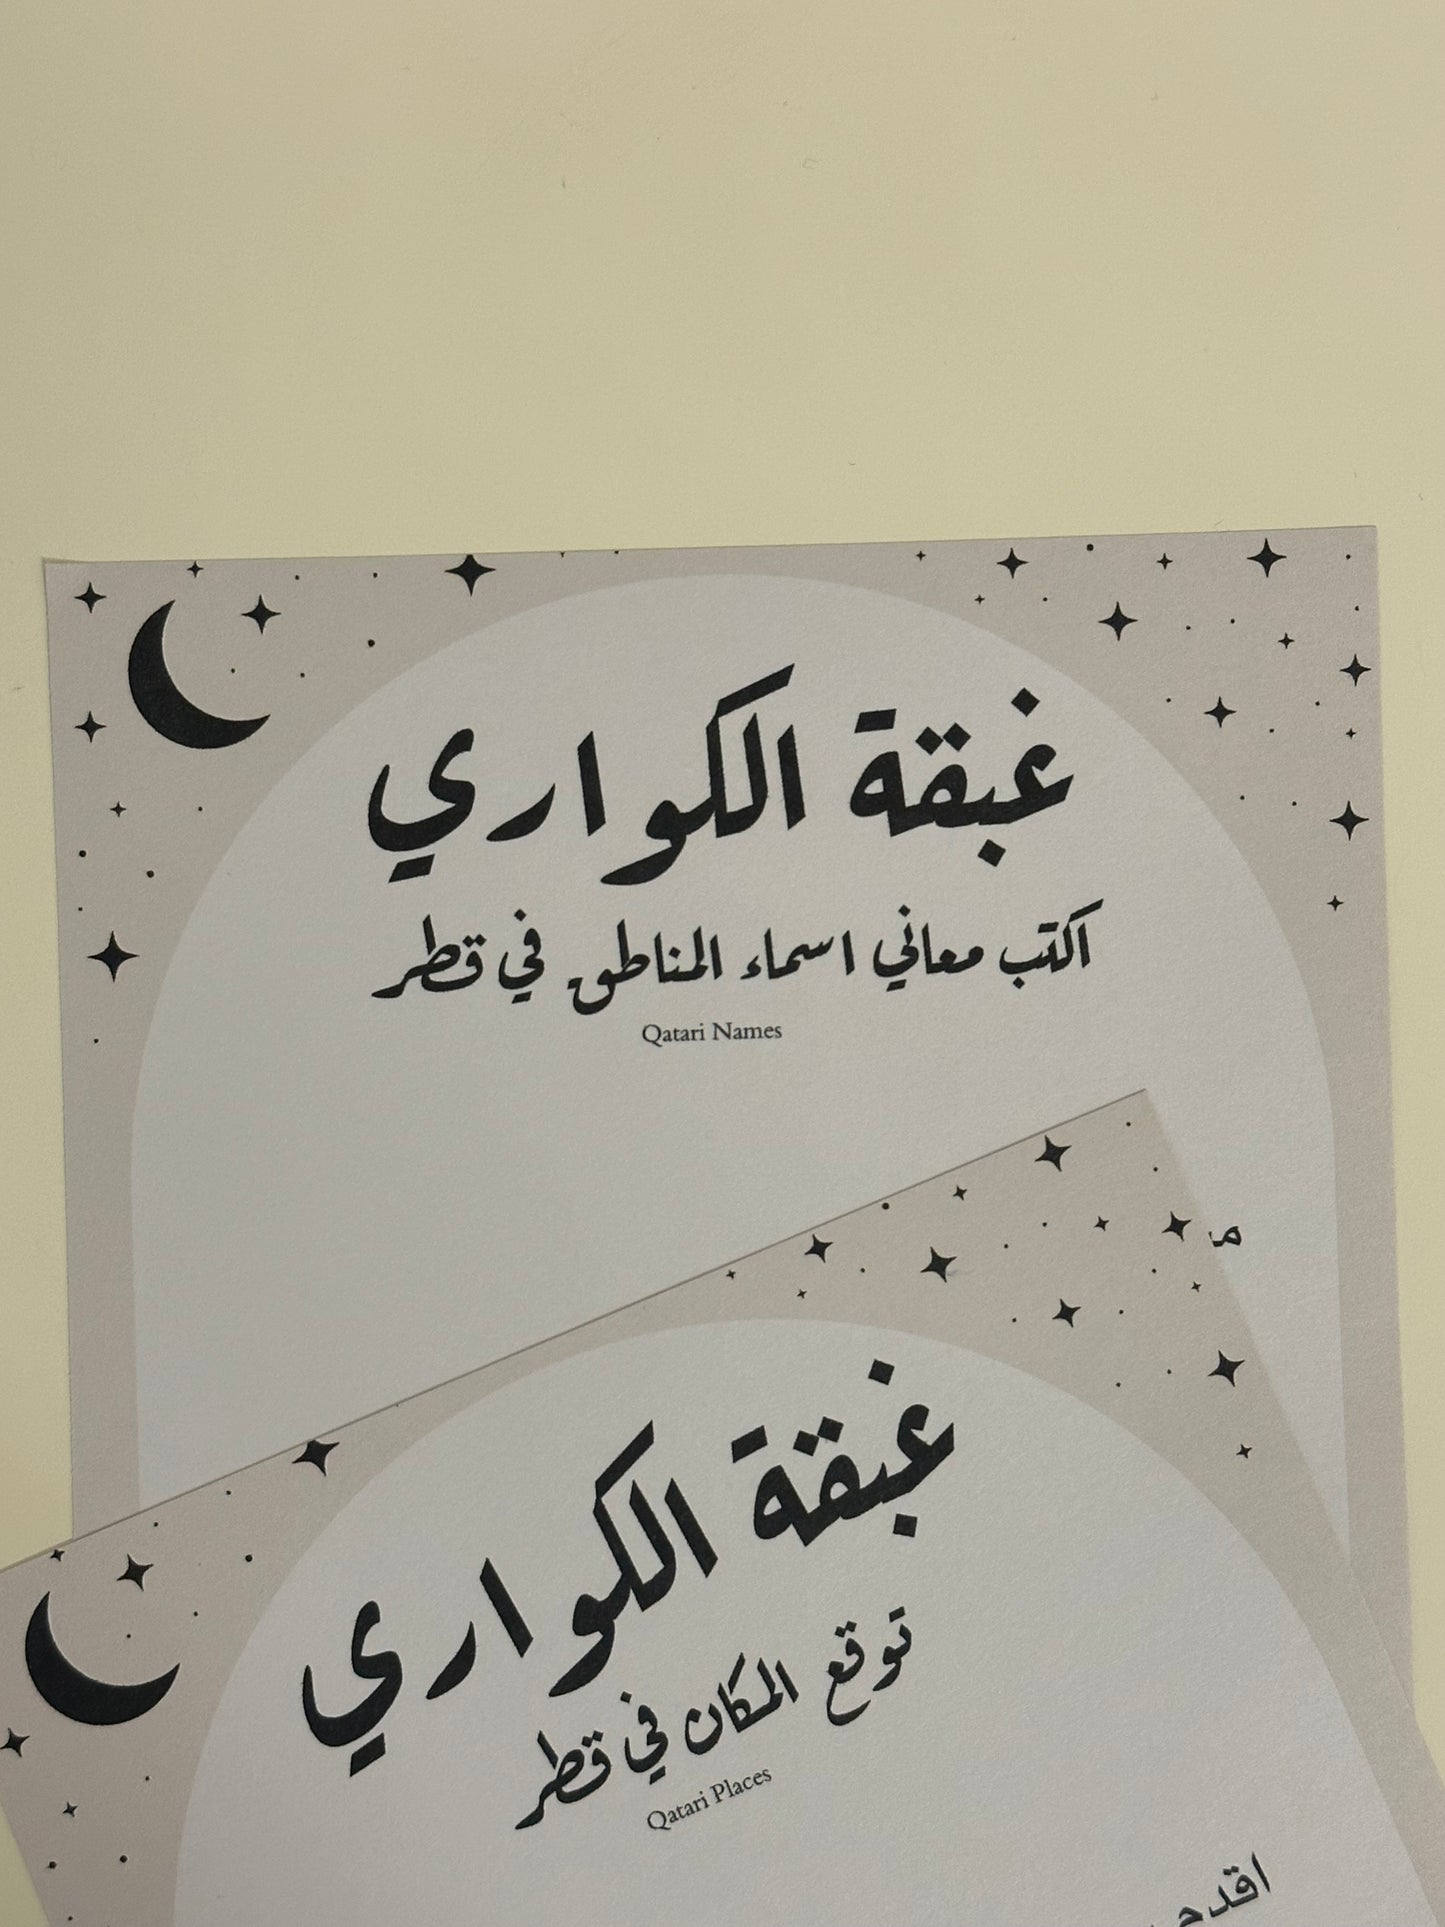 غبقة الكواري
اكتب معاني اسماء المناطق في قطر
Qatari Names
غبقة الكواري
توقع المكان في قطر
Qatari Places